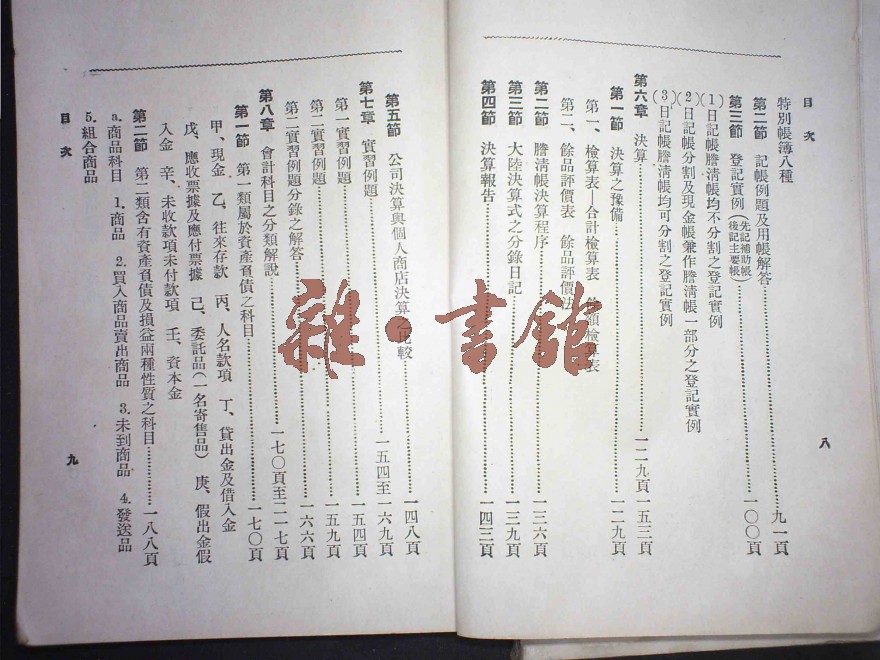 目次
特別帳簿八種
第二節 記帳例題及用帳解答……九一頁
第三節 登記實例(先記補助帳後記主要帳)……一〇〇頁
(1)日記帳謄清帳均不分割之登記實例
(2)日記帳分割及現金帳兼作謄清帳一部分之登記實例
(3)日記帳謄清帳均可分割之登記實例
第六章 決算……一二九頁—一五三頁
第一節 決算之豫備……一二九頁
第一、檢算表—合計檢算表 餘額檢算表
第二、餘品評價表 餘品評價法
第二節 謄清帳決算程序……一三六頁
第三節 大陸決算式之分錄日記……一三九頁
第四節 決算報告……一四三頁
八
第五節 公司決算與個人商店決算之比較……一四八頁
第七章 實習例題……一五四至一六九頁
第一實習例題……一五四頁
第二實習例題……一五九頁
第二實習例題分錄之解答……一六六頁
第八章 會計科目之分類解說……一七〇頁至二一七頁
第一節 第一類屬於資產負債之科目……一七〇頁
甲、現金 乙、往來存款 丙、人名款項 丁、貸出金及借入金
戊、應收票據及應付票據 己、委託品(一名寄售品) 庚、假出金假
入金 辛、未收款項未付款項 壬、資本金
第二節 第二類含有資產負債及損益兩種性質之科目……一八八頁
a. 商品科目 1. 商品 2. 買入商品賣出商品 3. 未到商品 4. 發送品
5. 組合商品
目次
九
雜·書館